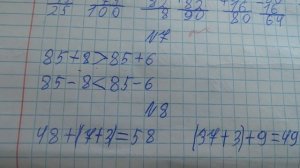 25 100 8 90 80 64
№7
85+8>85+6
85-8<85-6
№8
48+(7+3)=58 (37+3)+9=49